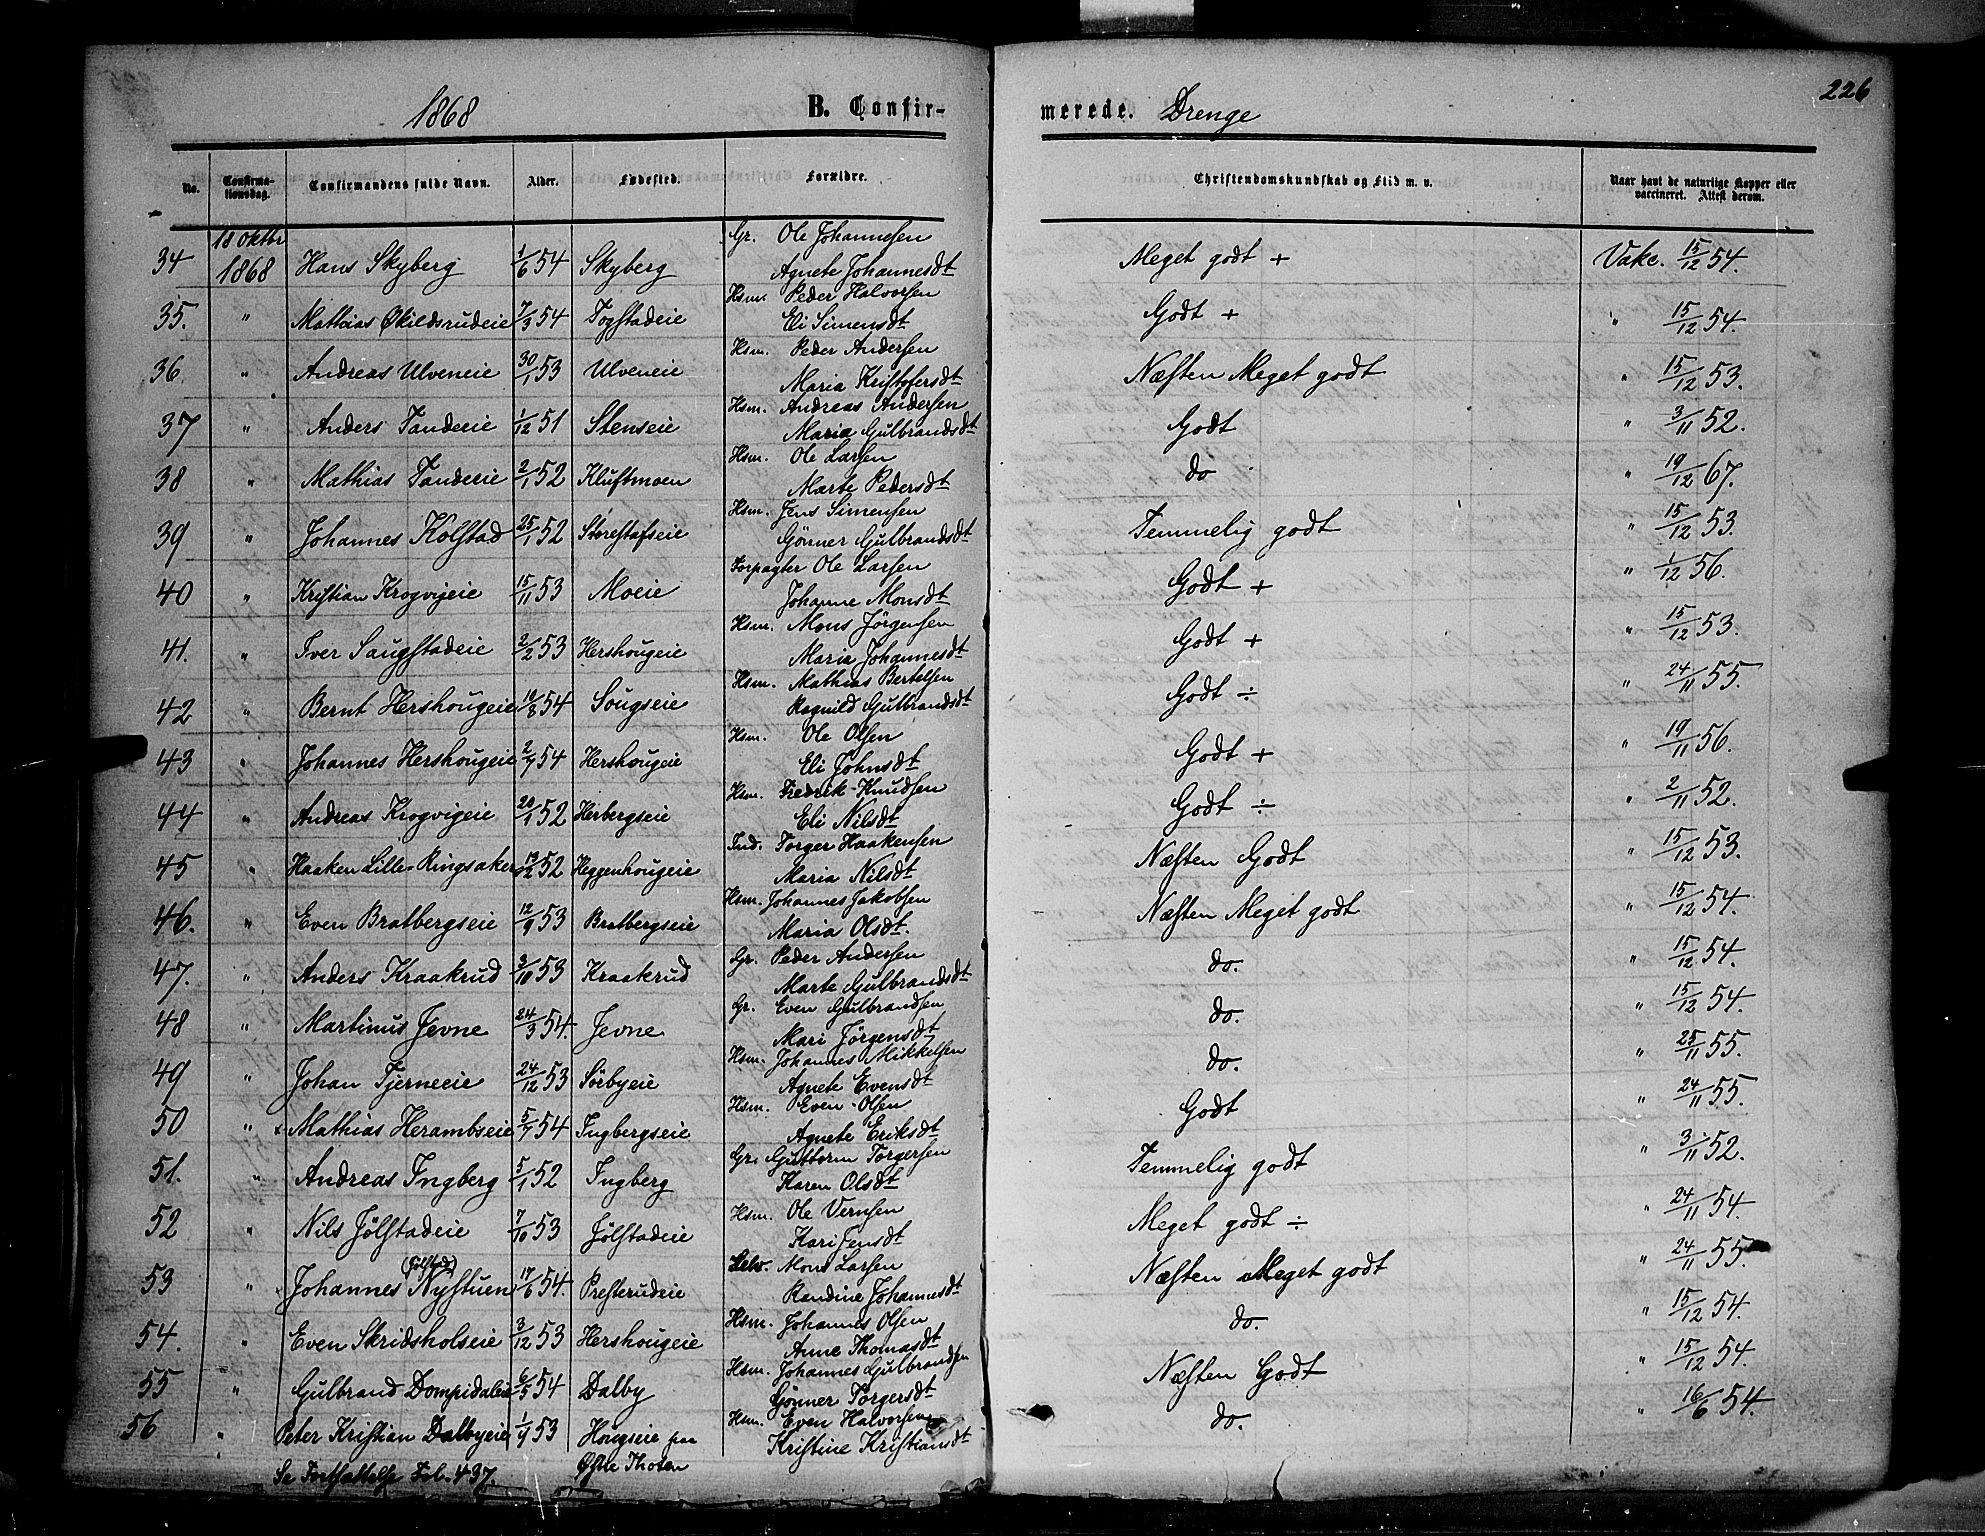 226
1868 B. Confir- merede. Drenge
No. Confirma-tionsdag. Confirmandens fulde Navn. Alder. Fødested. Forældre. Christendomskundskab og Flid m. v. Naar havt de naturlige Kopper eller vaccineret. Attest derom.
34 18 Oktbr 1868 Hans Skyberg 1/6 54 Skyberg Gr. Ole Johannesen Agnete Johannesdt Meget godt + Vakc. 15/12 54.
35. " Mathias Økildsrudeie 7/3 54 Togstadeie Hsm. Peder Halvorsen Eli Simensdt Godt + " 15/12 54.
36 " Andreas Ulveneie 30/1 53 Ulveneie Hsm. Peder Andersen Maria Kristofersdt Næsten Meget godt " 15/12 53.
37 " Anders Tandeeie 1/12 51 Stenseie Hsm. Andreas Andersen Maria Gulbrandsdt Godt " 3/11 52.
38 " Mathias Tandeeie 2/1 52 Kluftmoen Hsm. Ole Larsen Marte Pedersdt do " 19/12 67.
39 " Johannes Kolstad 25/1 52 Storestafseie Hsm. Jens Simensen Gønner Gulbrandsdt Temmelig godt " 15/12 53.
40 " Kristian Krogvigeie 15/11 53 Moeie Forpagter Ole Larsen Johanne Monsdt Godt + " 1/12 56.
41. " Iver Saugstadeie 2/2 53 Hershougeie Hsm. Mons Jörgensen Maria Johannesdt Godt + " 15/12 53.
42 " Bernt Hershougeie 10/8 54 Sougseie Hsm. Mathias Bertelsen Ragnild Gulbrandsdt Godt ÷ " 24/11 55.
43 " Johannes Hershougeie 2/7 54 Hershougeie Hsm. Ole Olsen Eli Johnsdt Godt + " 19/11 56.
44 " Andreas Krogvigeie 20/1 52 Herbergseie Hsm. Fredrik Knudsen Eli Nilsdt Godt ÷ " 2/11 52.
45 " Haaken Lille-Ringsaker 52 Heggenhougeie Ind. Torger Haakensen Maria Nilsdt Næsten Godt " 15/12 53.
46. " Even Bratbergseie 12/9 53 Bratbergseie Hsm. Johannes Jakobsen Maria Olsdt. Næsten Meget godt " 15/12 54.
47. " Anders Kraakrud 3/10 53 Kraakrud Gr. Peder Andersen Marte Gulbrandsdt do. " 15/12 54.
48 " Martinus Jevne 24/3 54. Jevne Gr. Even Gulbrandsen Mari Jörgensdt do. " 15/12 54.
49 " Johan Tjerneeie 24/12 53 Sörbyeie Hsm. Johannes Mikkelsen Agnete Evensdt do. " 25/11 55.
50 " Mathias Herambseie 5/7 54 Ingbergseie Hsm. Even Olsen Agnete Eriksdt Godt " 24/11 55.
51. " Andreas Ingberg 5/1 52 Ingberg Gr. Guttorm Torgersen Karen Olsdt Temmelig godt " 3/11 52.
52 " Nils Jölstadeie 7/10 53 Jölstadeie Hsm. Ole Vernsen Kari Jensdt Meget godt ÷ " 24/11 54.
53 " Johannes (Jölstad) Nystuen 17/6 54. Presterudeie Selv. Mons Larsen Randine Johannesdt Næsten Meget godt " 24/11 55.
54. " Even Skridsholseie 3/12 53 Hershougeie Hsm. Johannes Olsen Anne Thomasdt do. " 15/12 54.
55 " Gulbrand Dompidaleie 6/5 54 Dalby Hsm. Johannes Gulbrandsen Gönner Torgersdt Næsten Godt " 15/12 54.
56 " Peter Kristian Dalbyeie 1/7 53 Hougseie paa Østre Thoten Hsm. Even Halvorsen Kristine Kristiansdt do. " 16/6 54.
Se Fortsættelse Fol. 437.